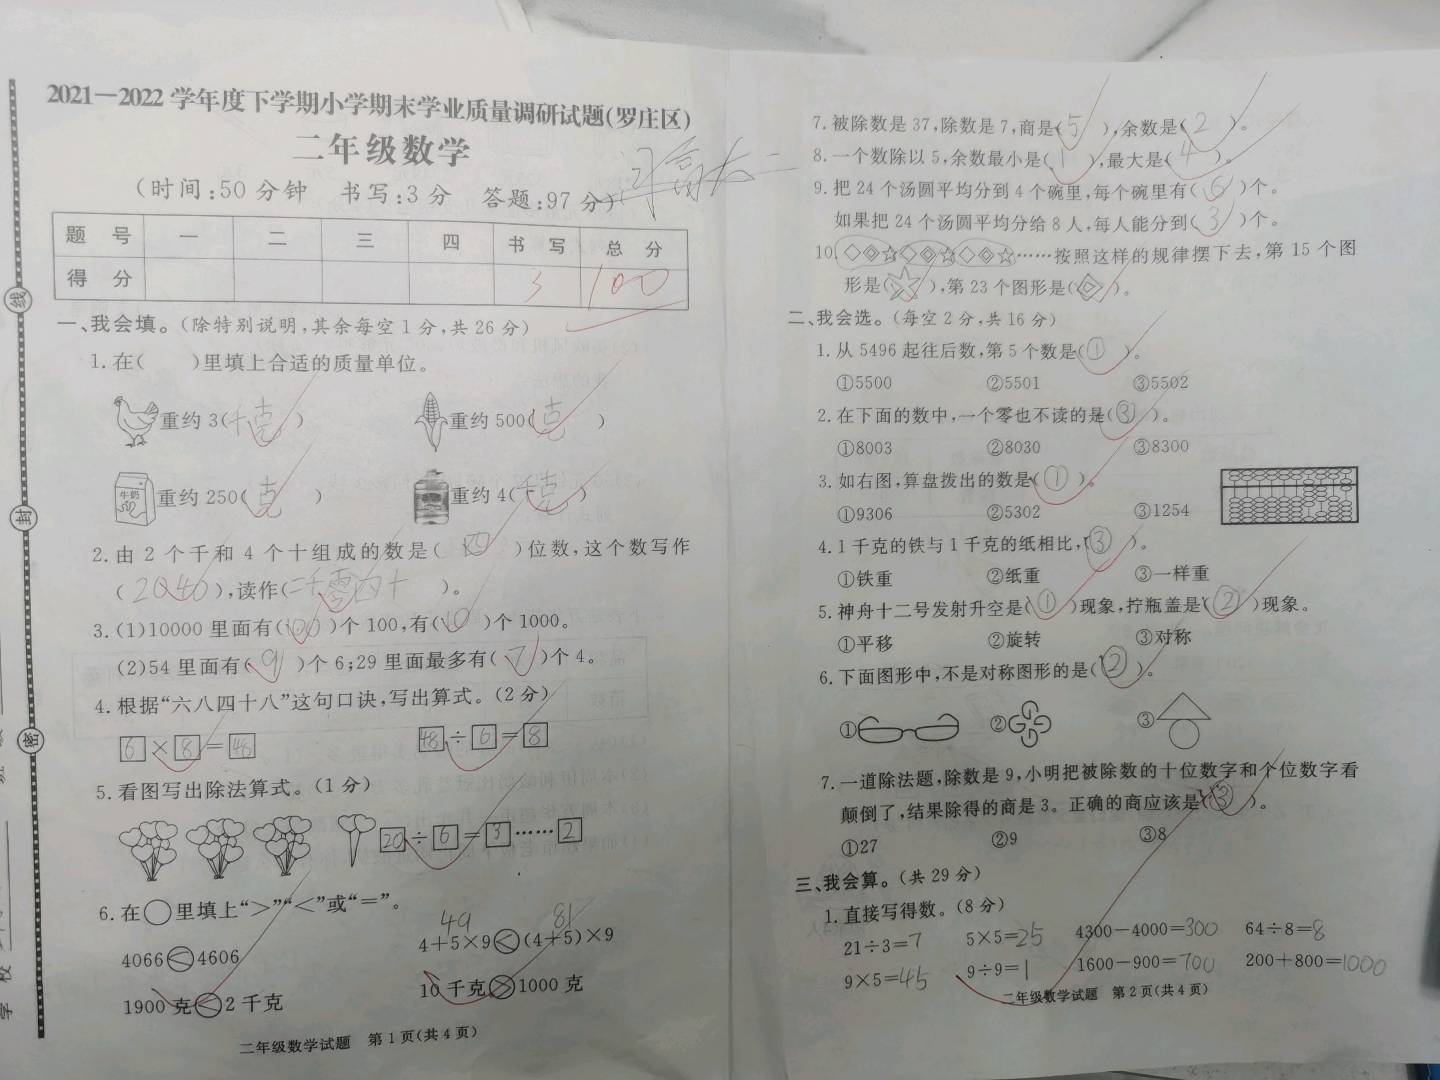 2021—2022学年度下学期小学期末学业质量调研试题(罗庄区)
二年级数学
(时间:50分钟 书写:3分 答题:97分)
题 号 一 二 三 四 书 写 总 分
得 分 3 100
一、我会填。(除特别说明,其余每空1分,共26分)
1.在( )里填上合适的质量单位。
重约3(千克) 重约500(克)
牛奶
重约250(克) 重约4(千克)
2.由2个千和4个十组成的数是(四)位数,这个数写作
(2040),读作(二千零四十)。
3.(1)10000里面有(100)个100,有(10)个1000。
(2)54里面有(9)个6;29里面最多有(7)个4。
4.根据“六八四十八”这句口诀,写出算式。(2分)
6×8=48 48÷6=8
5.看图写出除法算式。(1分)
20÷6=3……2
6.在○里填上“>”“<”或“=”。
49 81
4066<4606 4+5×9<(4+5)×9
1900克<2千克 10千克>1000克
二年级数学试题 第1页(共4页)
学校
班
线
封
密
7.被除数是37,除数是7,商是(5),余数是(2)。
8.一个数除以5,余数最小是(1),最大是(4)。
9.把24个汤圆平均分到4个碗里,每个碗里有(6)个。
如果把24个汤圆平均分给8人,每人能分到(3)个。
10.◇◈☆◇◈☆◇◈☆……按照这样的规律摆下去,第15个图
形是(☆),第23个图形是(◈)。
二、我会选。(每空2分,共16分)
1.从5496起往后数,第5个数是(①)。
①5500 ②5501 ③5502
2.在下面的数中,一个零也不读的是(③)。
①8003 ②8030 ③8300
3.如右图,算盘拨出的数是(①)。
①9306 ②5302 ③1254
4.1千克的铁与1千克的纸相比,(③)。
①铁重 ②纸重 ③一样重
5.神舟十二号发射升空是(①)现象,拧瓶盖是(②)现象。
①平移 ②旋转 ③对称
6.下面图形中,不是对称图形的是(②)。
① ② ③
7.一道除法题,除数是9,小明把被除数的十位数字和个位数字看
颠倒了,结果除得的商是3。正确的商应该是(③)。
①27 ②9 ③8
三、我会算。(共29分)
1.直接写得数。(8分)
21÷3=7 5×5=25 4300-4000=300 64÷8=8
9×5=45 9÷9=1 1600-900=700 200+800=1000
二年级数学试题 第2页(共4页)